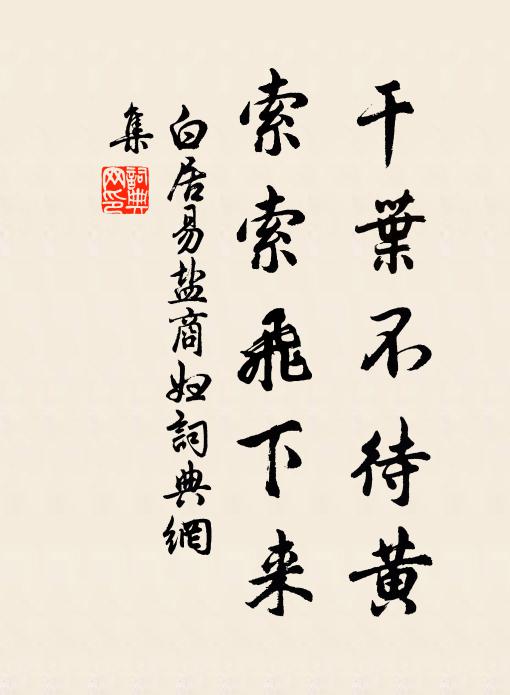 干葉不待黄
索索飛下来
白居易盐商妇詞典網
集
詞典网印